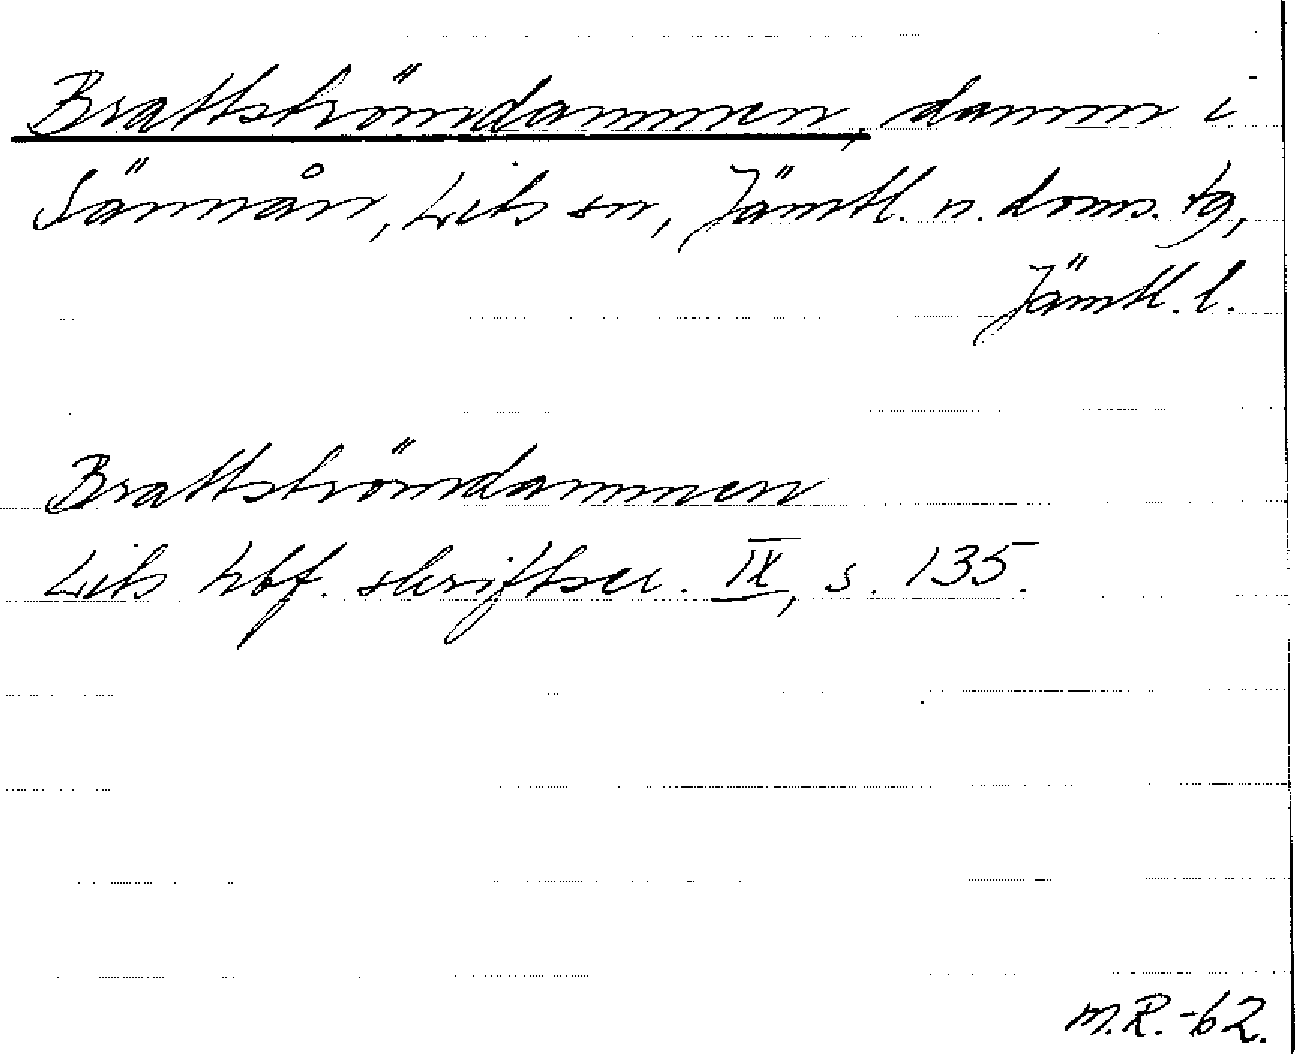 Brattströmdammen, damm i
Sännån, Lits sn, Jämtl. n. doms. tg,
Jämtl. l.
Brattströmdammen
Lits hbf. skriftser. IX, s. 135.
M.R.-62.